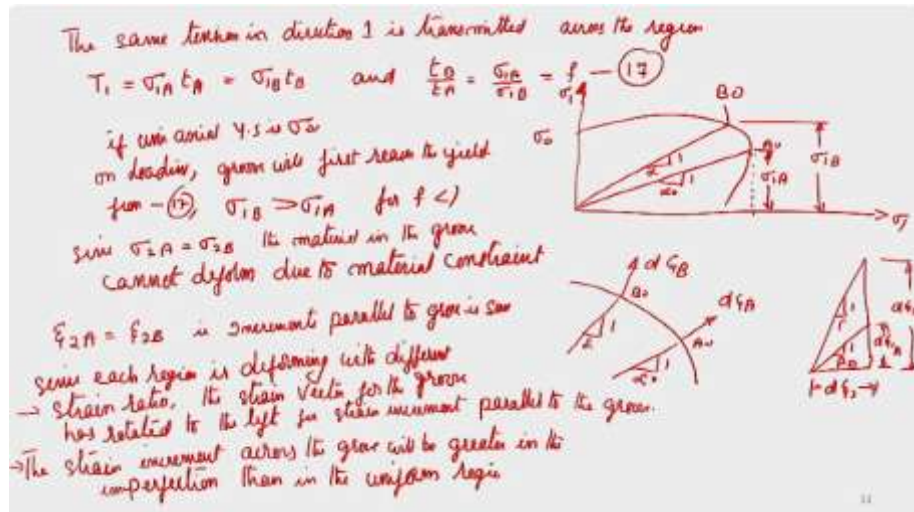 The same tension in direction 1 is transmitted across the region
T₁ = σ₁A tA = σ₁B tB and tB/tA = σ₁A/σ₁B = f — (17)
if uni axial Y.S is σ₀
on loading, groove will first reach the yield
from - (17), σ₁B > σ₁A for f <1
since σ₂A = σ₂B the material in the groove
cannot deform due to material constraint
ε₂A = ε₂B ie Increment parallel to groove is same
since each region is deforming with different
→ strain ratio, the strain vector for the groove
has rotated to the left for strain increment parallel to the groove.
→ The strain increment across the groove will be greater in the
imperfection than in the uniform region
σ₁
σ₀
B0
A0
α 1
α₀ 1
σ₁A
σ₁B
dεB
B0
dεA
A0
α 1
α₀ 1
1
β₀ 1